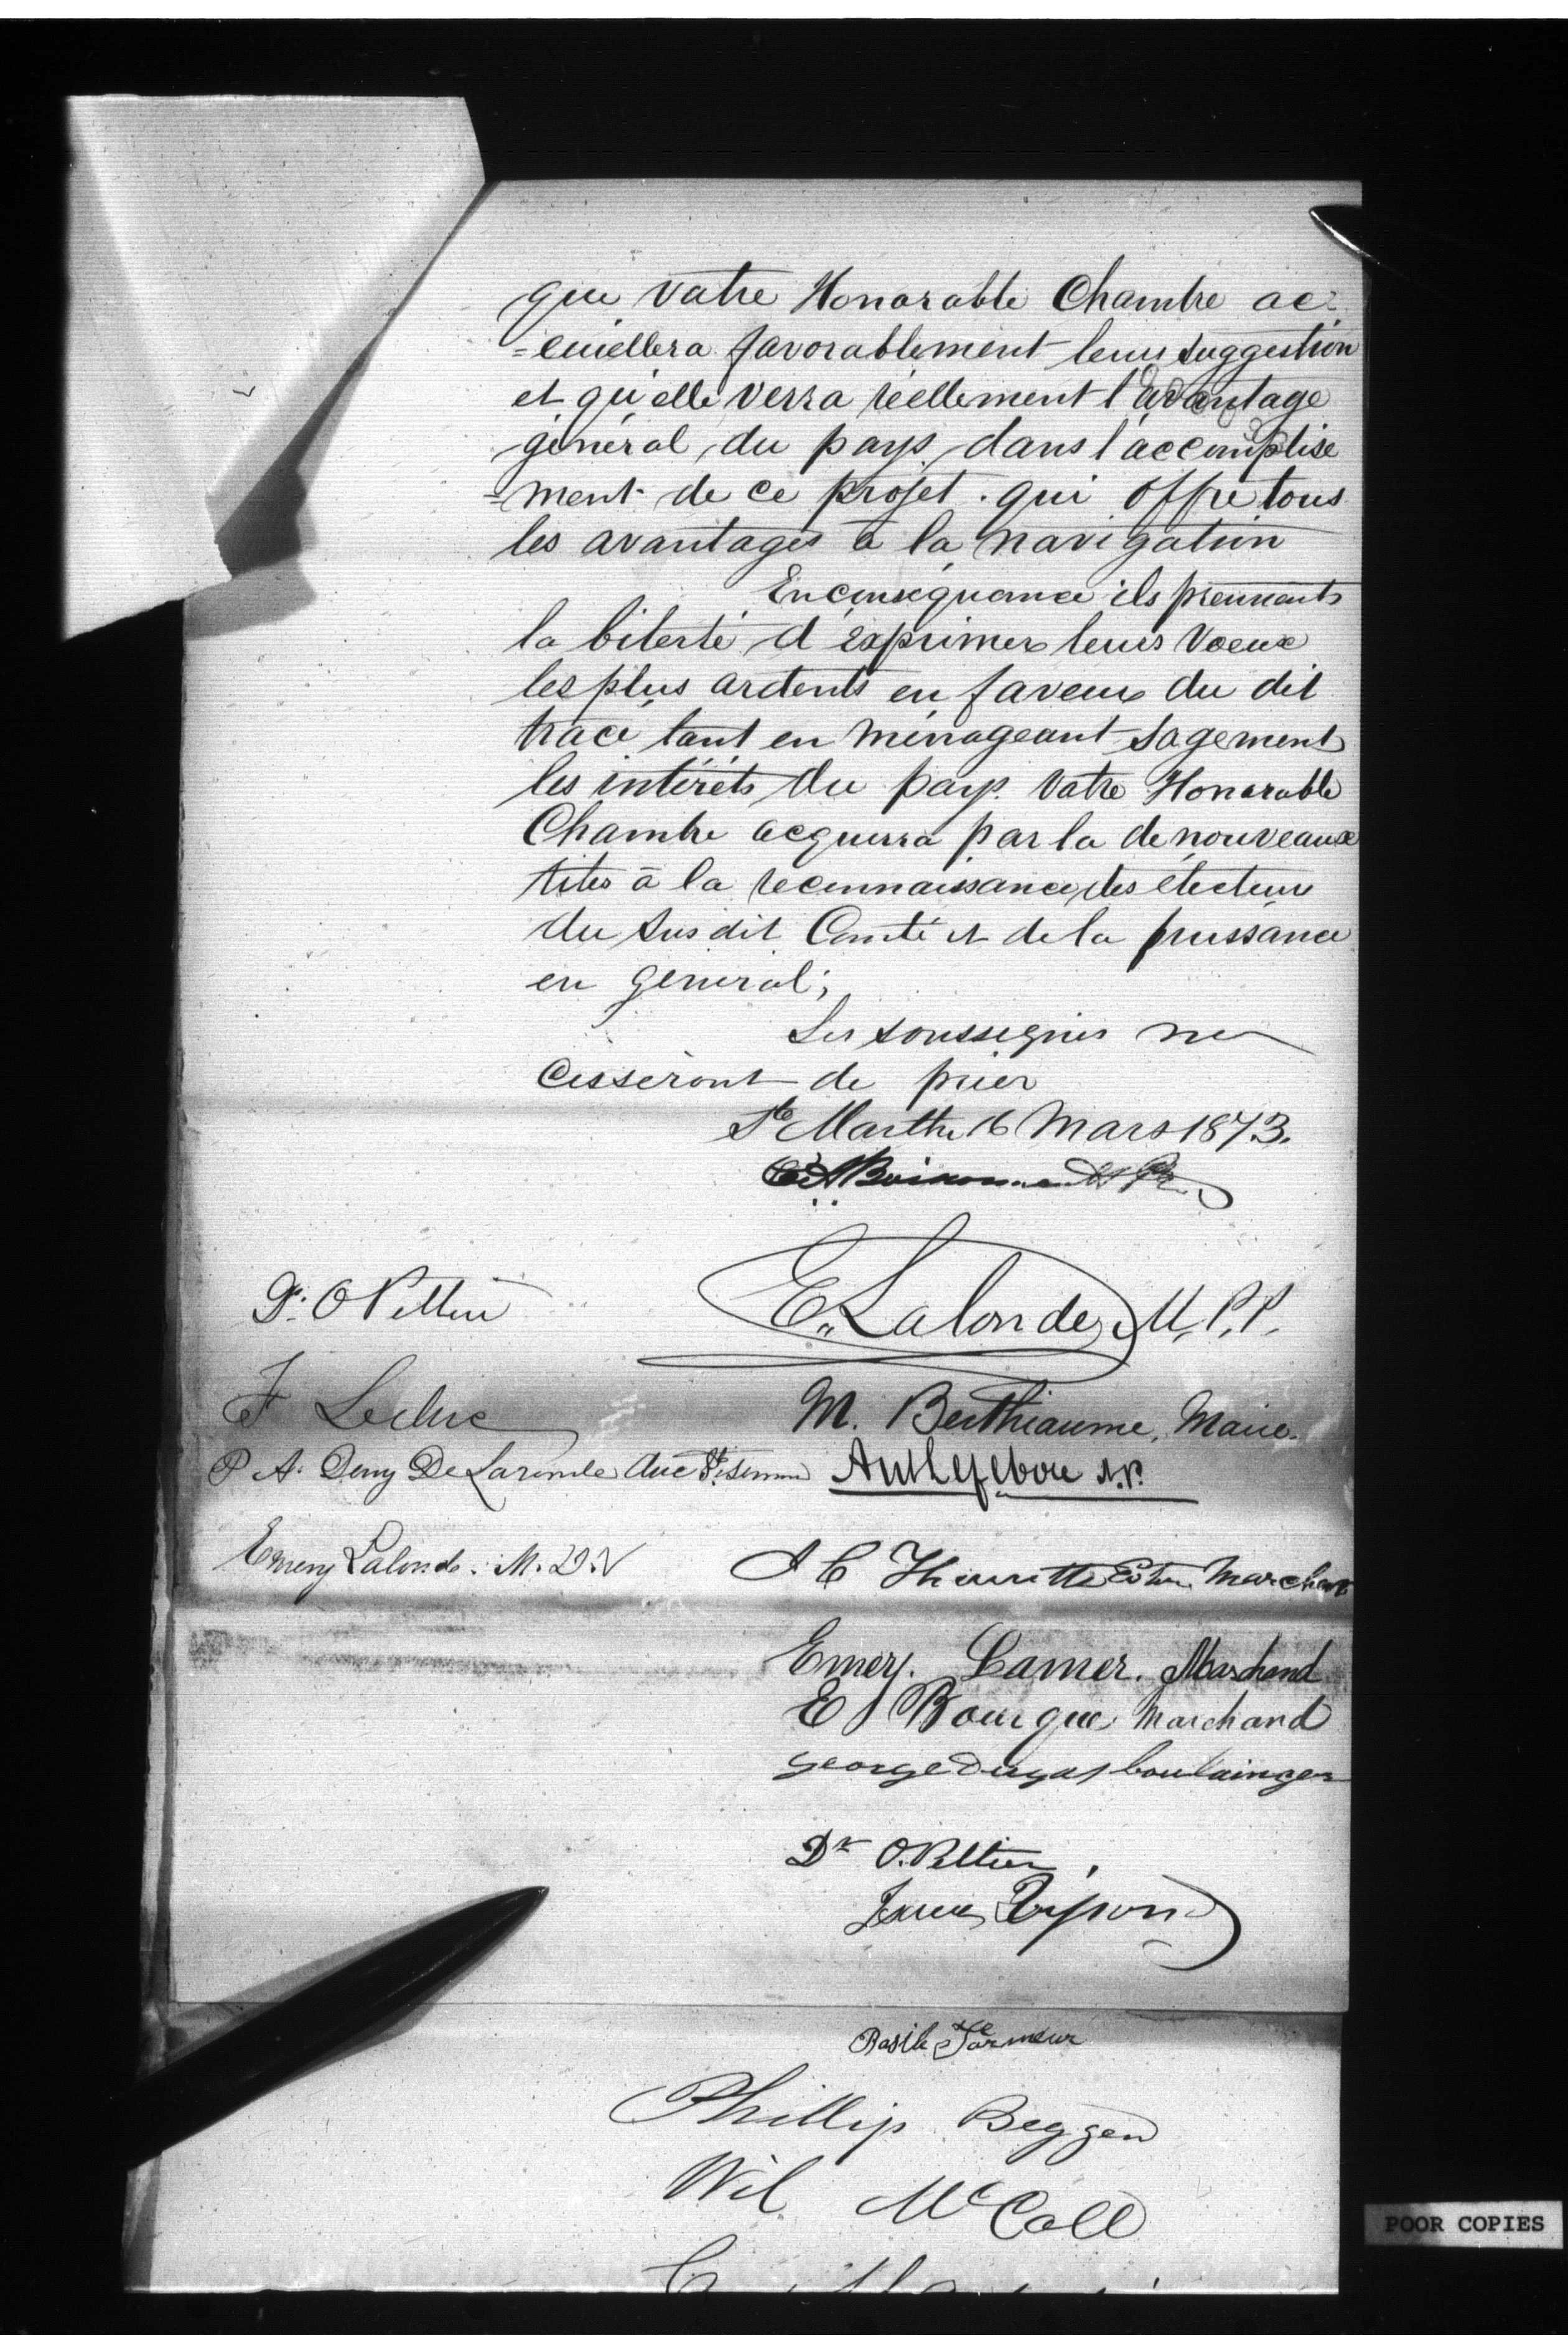 que votre Honorable Chambre ac=
=cuiellera favorablement leur suggestion
et qu'elle verra réellement l'avantage
général du pays dans l'accomplise
=ment de ce projet. qui offre tous
les avantages à la navigation
En conséquance ils prennants
la biterté d'exprimer leurs voeux
les plus ardents en faveur du dit
tracé, tant en ménageant sagement
les intérêts du pays. Votre Honorable
Chambre acquerra par la de nouveaux
titres à la reconnaissance des électeurs
du sus dit Comté et de la puissance
en général;
Les soussegnés ne
cesseront de prier
Ste Marthe 16 Mars 1873.
Dr. O Peltier
E. Lalonde, M.P.P.
F Leclerc
M. Berthiaume, Maire.
P A.
Ant Lefebvre N.P.
Emery Lalonde. M.D.V
J C Marchand
Emery. Lamer. Marchand
E Bourque Marchand
george dugas boulainger
Dr O. Peltier,
Basile
Phillip Beggen
Wil McCall
POOR COPIES